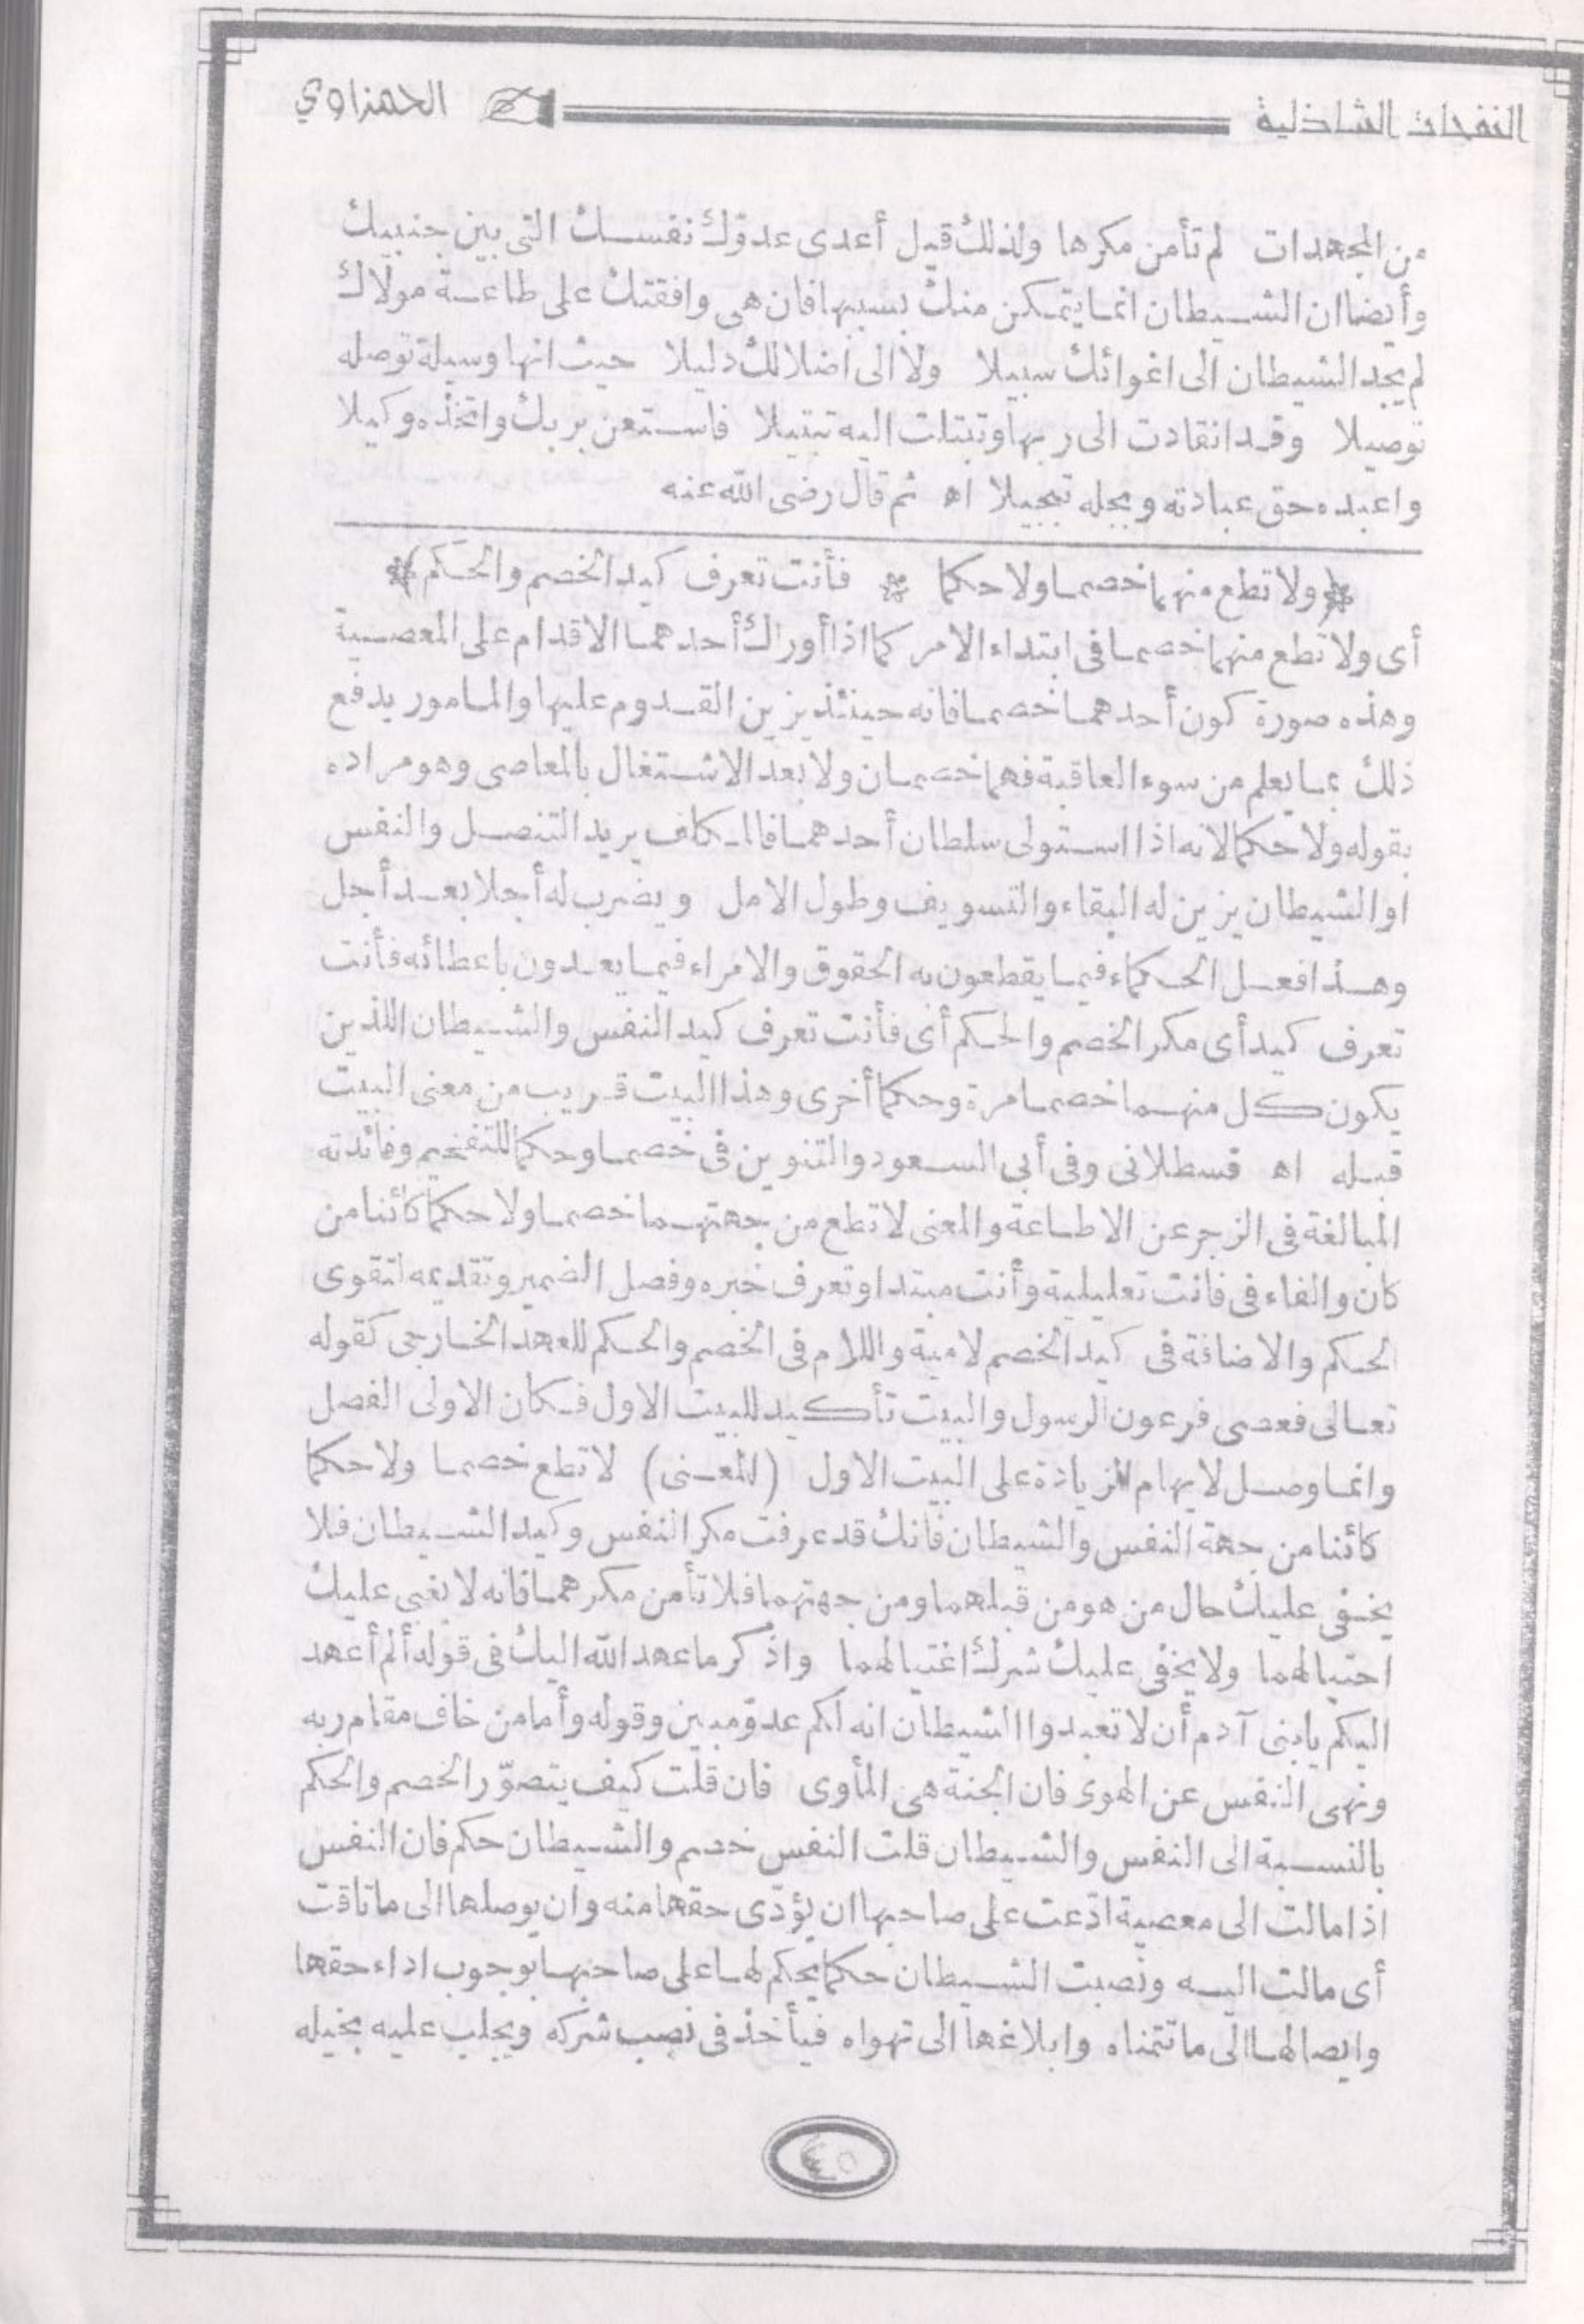 النفحات الشاذلية
الحمزاوي
من المجهدات لم تأمن مكرها ولذلك قيل أعدى عدوّك نفسك التي بين جنبيك
وأيضا ان الشيطان انما يتمكن منك بسببها فان هى وافقتك على طاعة مولاك
لم يجد الشيطان الى اغوائك سبيلا ولا الى اضلالك دليلا حيث انها وسيلة توصله
توصيلا وقد انقادت الى ربها وتبتلت اليه تبتيلا فاستعن بربك واتخذه وكيلا
واعبده حق عبادته وبجله تبجيلا اه ثم قال رضى الله عنه
ولا تطع منهما خصما ولا حكما * فأنت تعرف كيد الخصم والحكم
أى ولا تطع منهما خصما فى ابتداء الامر كما اذا أوراك أحدهما الاقدام على المعصية
وهذه صورة كون أحدهما خصما فانه حينئذ يزين القدوم عليها والمامور يدفع
ذلك بما يعلم من سوء العاقبة فهما خصمان ولا بعد الاشتغال بالمعاصى وهو مراده
بقوله ولا حكما لانه اذا استولى سلطان أحدهما فالمكلف يريد التنصل والنفس
او الشيطان يزين له البقاء والتسويف وطول الامل ويضرب له أجلا بعد أجل
وهذا فعل الحكماء فيما يقطعون به الحقوق والامراء فيما يعدون باعطائه فأنت
تعرف كيد أى مكر الخصم والحكم أى فأنت تعرف كيد النفس والشيطان اللذين
يكون كل منهما خصما مرة وحكما أخرى وهذا البيت قريب من معنى البيت
قبله اه قسطلانى وفى أبى السعود والتنوين فى خصما وحكما للتفخيم وفائدته
المبالغة فى الزجر عن الاطاعة والمعنى لا تطع من جهتهما خصما ولا حكما كائنا من
كان والفاء فى فانت تعليلية وأنت مبتدا وتعرف خبره وفصل الضمير وتقديمه لتقوى
الحكم والاضافة فى كيد الخصم لامية واللام فى الخصم والحكم للعهد الخارجى كقوله
تعالى فعصى فرعون الرسول والبيت تأكيد للبيت الاول فكان الاولى الفصل
وانما وصل لايهام الزيادة على البيت الاول (المعنى) لا تطع خصما ولا حكما
كائنا من جهة النفس والشيطان فانك قد عرفت مكر النفس وكيد الشيطان فلا
يخفى عليك حال من هو من قبلهما ومن جهتهما فلا تأمن مكرهما فانه لا يغبى عليك
احتيالهما ولا يخفى عليك شرك اغتيالهما واذكر ما عهد الله اليك فى قوله ألم أعهد
اليكم يا بنى آدم أن لا تعبدوا الشيطان انه لكم عدوّ مبين وقوله وأما من خاف مقام ربه
ونهى النفس عن الهوى فان الجنة هى المأوى فان قلت كيف يتصوّر الخصم والحكم
بالنسبة الى النفس والشيطان قلت النفس خصم والشيطان حكم فان النفس
اذا مالت الى معصية ادّعت على صاحبها ان يؤدّى حقها منه وان يوصلها الى ما تاقت
أى مالت اليه ونصبت الشيطان حكما يحكم لها على صاحبها بوجوب اداء حقها
وايصالها الى ما تتمناه وابلاغها الى تهواه فيأخذ فى نصب شركه ويجلب عليه بخيله